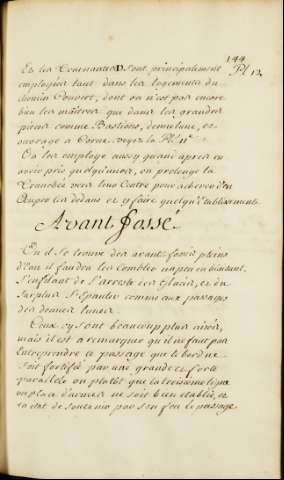 144
Pl 12
Et les Traverses sont principalement
employées tant dans les logements du
chemin Couvert, dont on n'est pas encore
bien les maîtres que dans les grandes
pieces comme Bastions, demie lune, et
ouvrage a Corne voyez le Pl: 11e
On les employe aussy quand apres en
avoir pris quelqu'unes, on prolonge la
Tranchée vers leur Centre pour achever d'en
dedans et y faire quelqu'Etablissement.
Avant fossé.
Ou il se trouve des avants fossés pleins
d'eau il faudra les Combler un peu en biaisant,
S'enfilant de l'areste des Glacis, et du
Surplus S'Epauler comme aux passages
des demies lunes.
Ceux cy sont beaucoup plus aisés,
mais il est a remarquer qu'il ne faut pas
Entreprendre ce passage que le bord ne
soit fortifié par une grande et forte
parallele ou plutôt que la troisieme
place d'armes ne soit bien etablie, et
en etat de soutenir par son feu le passage